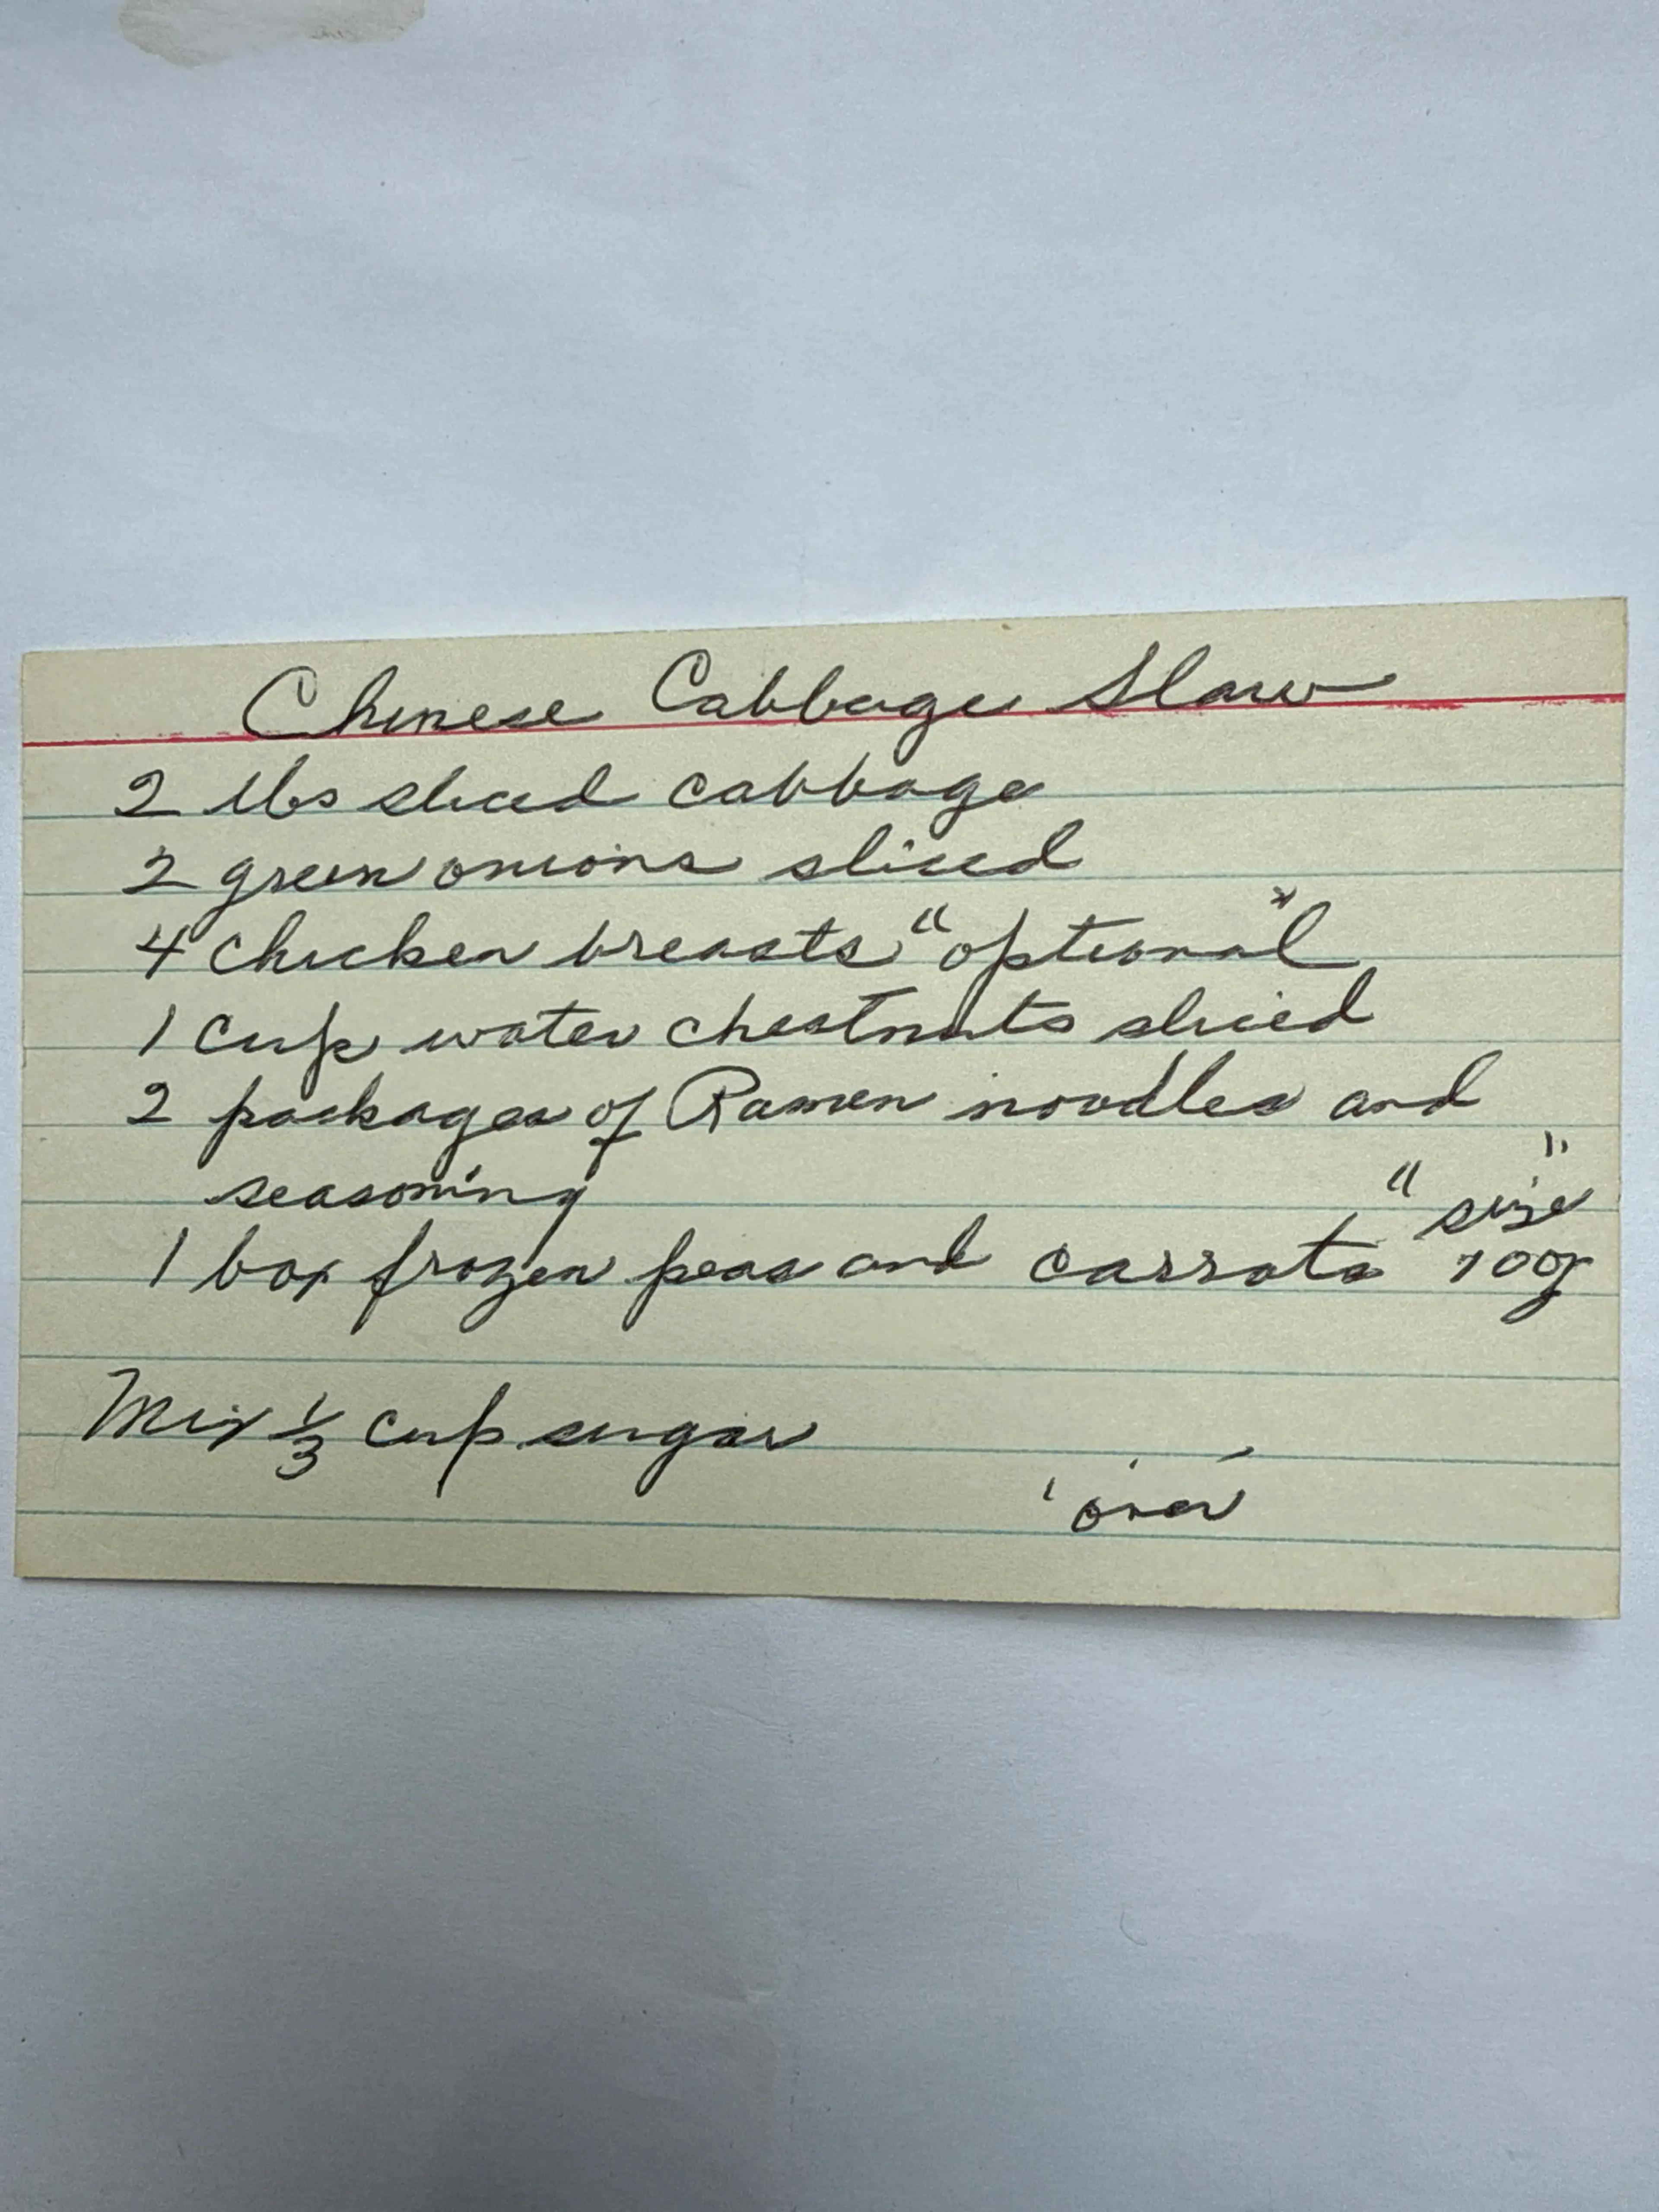 Chinese Cabbage Slaw
2 lbs sliced cabbage
2 green onions sliced
4 chicken breasts "optional"
1 cup water chestnuts sliced
2 packages of Ramen noodles and
seasoning
" size "
1 box frozen peas and carrots 10oz
Mix 1/3 cup sugar
'over'